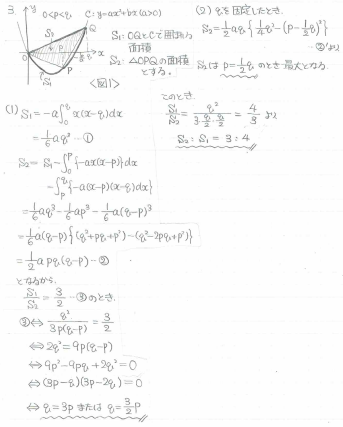 3. 0<p<q C: y=ax²+bx (a>0)
y
Q
S₂
O P x
p
q
S₁
S₁: OQとCで囲まれる
面積
S₂: △OPQの面積
とする。
<図1>
(1) S₁ = -a∫₀^q x(x-q)dx
= 1/6 aq³ - ①
S₂ = S₁ - ∫₀^p {-ax(x-p)}dx
- ∫ₚ^q {-a(x-p)(x-q)dx}
= 1/6 aq³ - 1/6 ap³ - 1/6 a(q-p)³
= 1/6 a(q-p){(q²+pq+p²)-(q²-2pq+p²)}
= 1/2 apq(q-p) - ②
となるから、
S₁/S₂ = 3/2 - ③のとき、
③⇔ q²/3p(q-p) = 3/2
⇔ 2q² = 9p(q-p)
⇔ 9p²-9pq+2q²=0
⇔ (3p-q)(3p-2q)=0
⇔ q=3p または q=3/2 p
(2) qを固定したとき、
S₂ = 1/2 aq {1/4 q² - (p - 1/2 q)²}
- ②'より
S₂は p=1/2 q のとき最大となる。
このとき、
S₁/S₂ = q²/3・q/2・q/2 = 4/3 より
S₂ : S₁ = 3 : 4